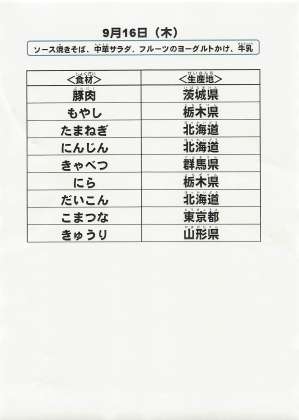 9月16日（木）
ソース焼きそば、中華サラダ、フルーツのヨーグルトかけ、牛乳
＜食材＞ ＜生産地＞
豚肉 茨城県
もやし 栃木県
たまねぎ 北海道
にんじん 北海道
きゃべつ 群馬県
にら 栃木県
だいこん 北海道
こまつな 東京都
きゅうり 山形県